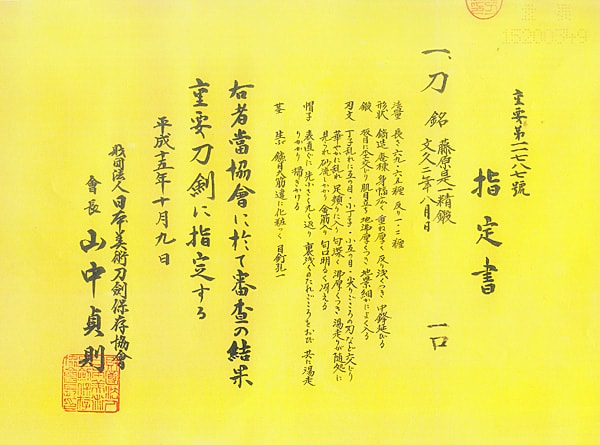 重要第一一七八七號
指定書
一、刀 銘 藤原是一精鍛
文久二年八月日
一口
法量 長さ六九・六五糎 反り一・二糎
形状 鎬造 庵棟 身幅広く 重ね厚く 反り浅くつき 中鋒延びる
鍛 板目に杢交じり 肌目立ち 地沸厚くつき 地景細かによく入る
刃文 丁子乱れに互の目・小丁子・小互の目・尖りごころの刃など交じり
華やかに乱れ 足頻りに入り 匂深く 沸厚くつき 湯走りが随処に
見られ 砂流しかかり 金筋入り 匂口明るく冴える
帽子 表直ぐに先小さく丸く返り 裏浅くのたれごころをおび 共に湯走
りかかり 掃きかける
茎 生ぶ 鑢目大筋違に化粧つく 目釘孔一
右者當協會に於て審査の結果
重要刀劍に指定する
平成十五年十月九日
財団法人日本美術刀劍保存協會
會長 山中貞則